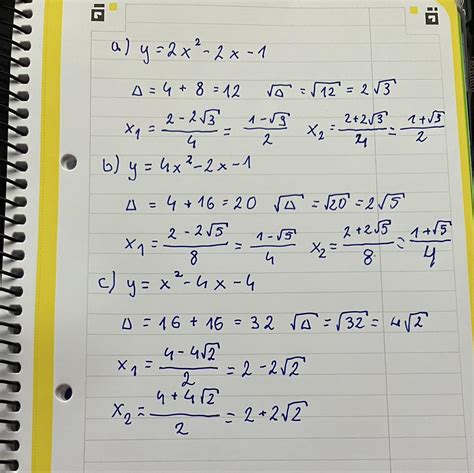 a) y = 2x² - 2x - 1
Δ = 4 + 8 = 12   √Δ = √12 = 2√3
x₁ = (2 - 2√3)/4 = (1 - √3)/2   x₂ = (2 + 2√3)/4 = (1 + √3)/2
b) y = 4x² - 2x - 1
Δ = 4 + 16 = 20   √Δ = √20 = 2√5
x₁ = (2 - 2√5)/8 = (1 - √5)/4   x₂ = (2 + 2√5)/8 = (1 + √5)/4
c) y = x² - 4x - 4
Δ = 16 + 16 = 32   √Δ = √32 = 4√2
x₁ = (4 - 4√2)/2 = 2 - 2√2
x₂ = (4 + 4√2)/2 = 2 + 2√2